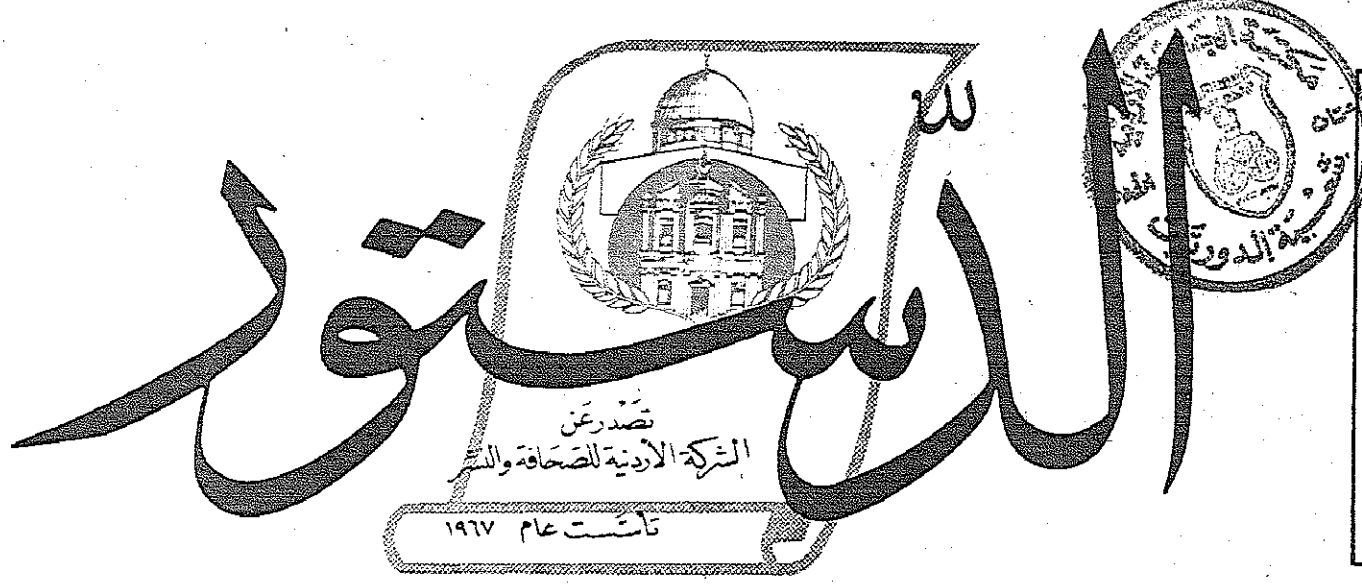 الدّستور
تصدر عن
الشركة الأردنية للصحافة والنشر
تأسست عام ١٩٦٧
شعبة الدوريات